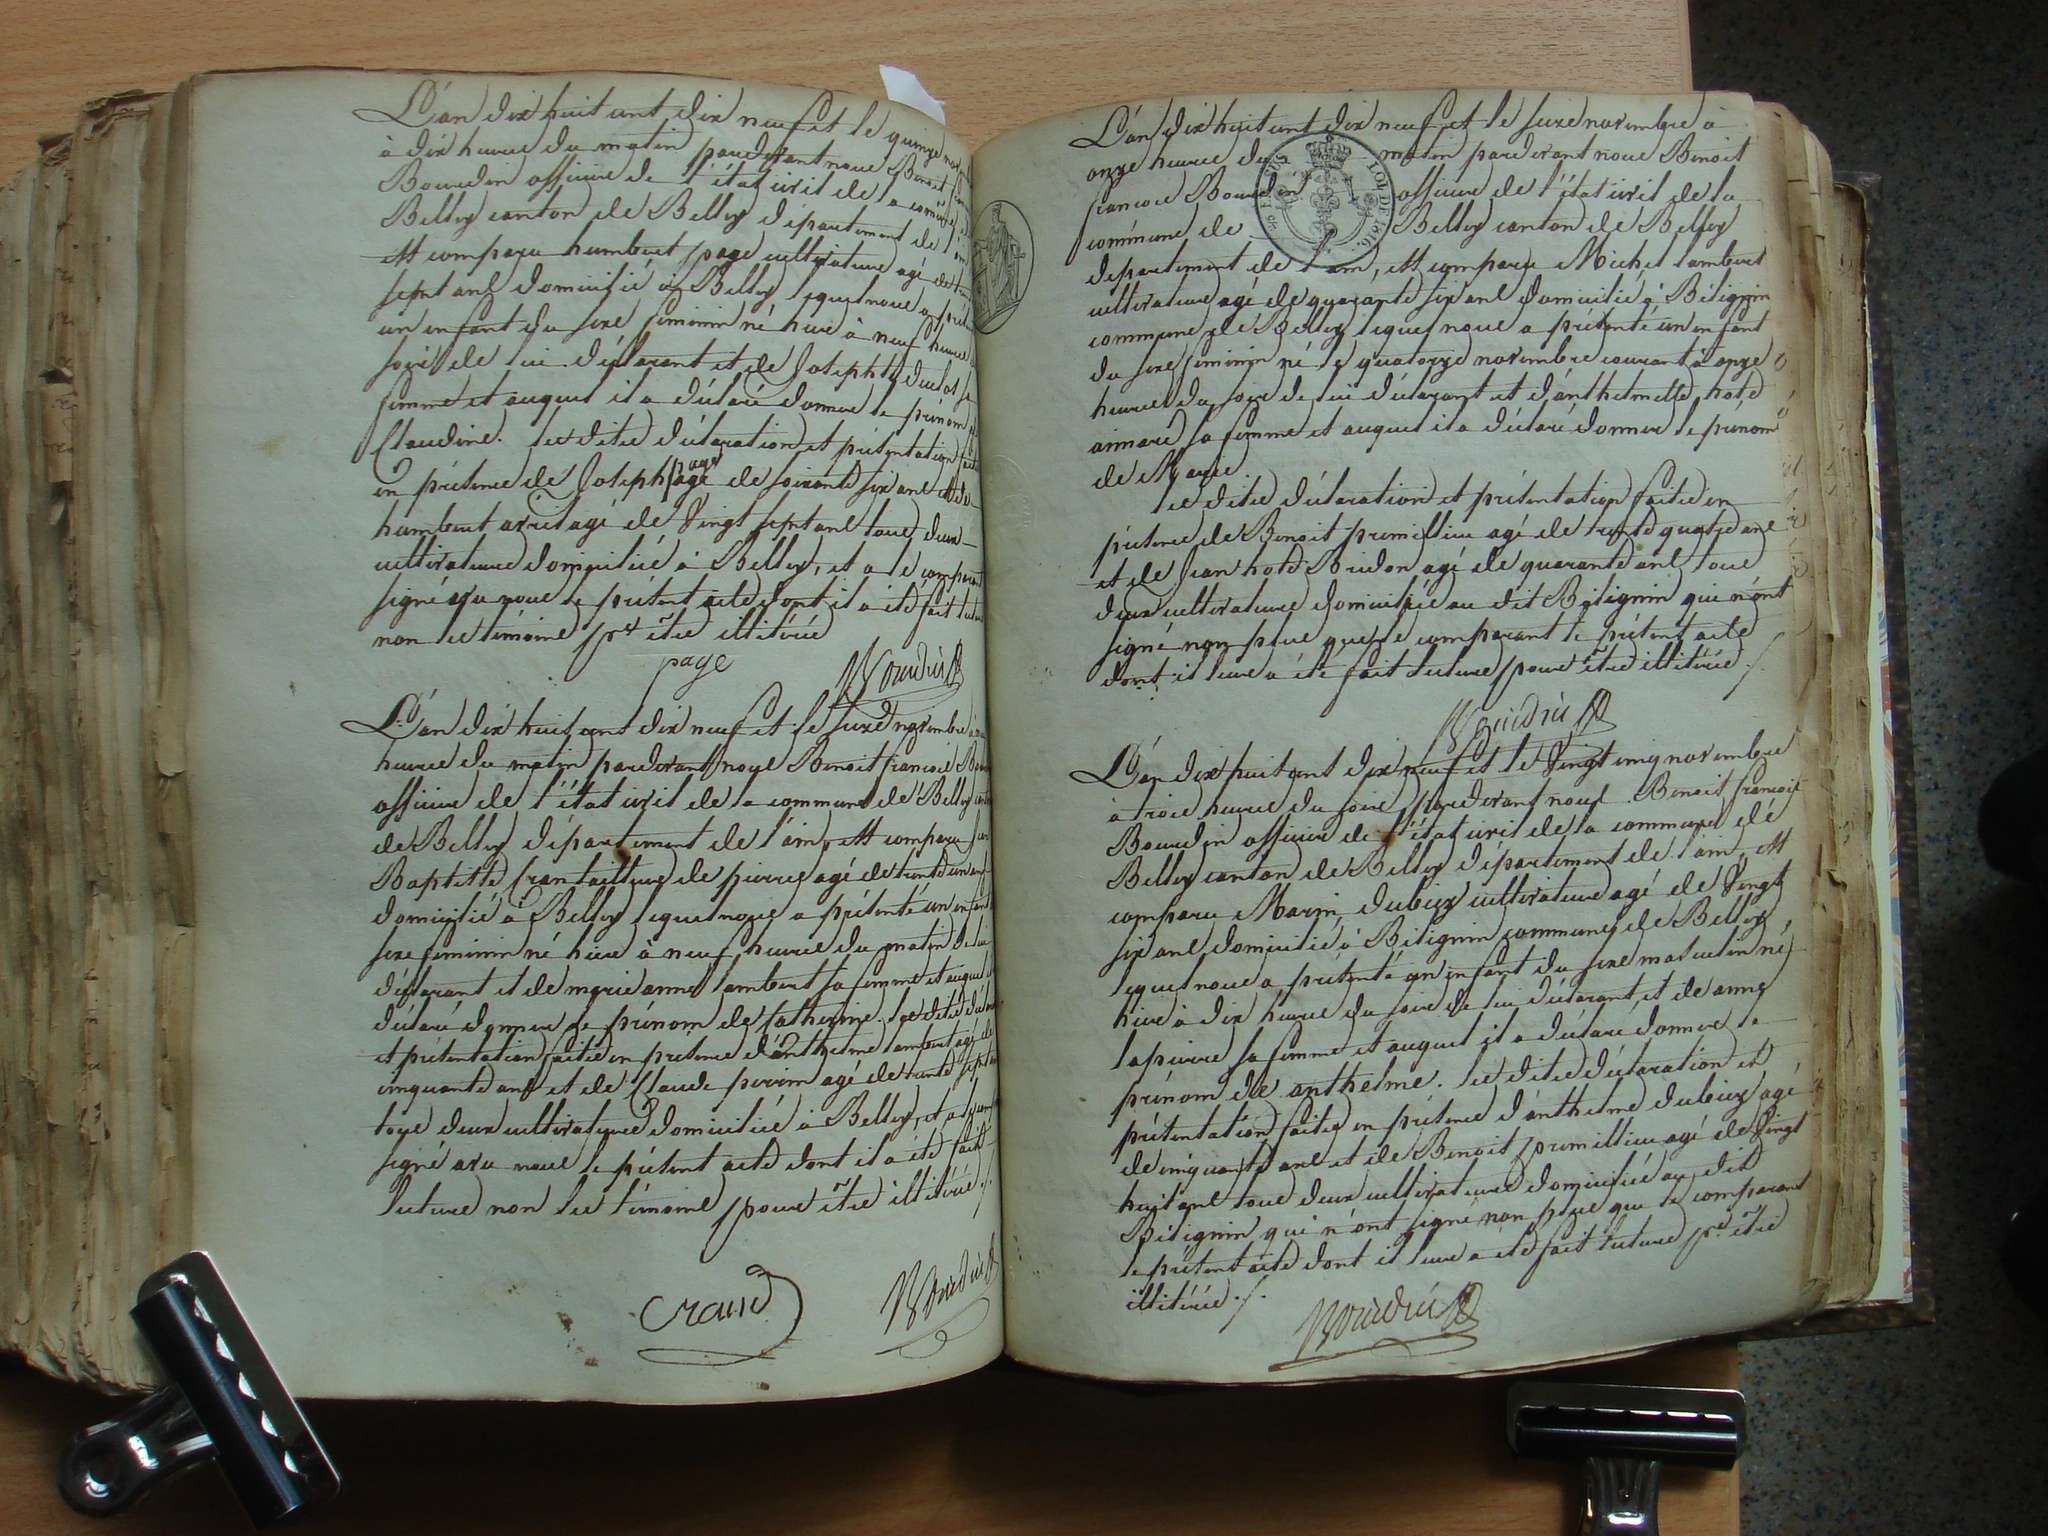 L'an dix huit cent dix neuf et le quinze
à dix heures du matin pardevant nous Benoit
Bourdin officier de l'état civil de la comune
Belley canton de Belley département de l'ain
est comparu humbert page cultivateur agé de
sept ans domicilié à Belley lequel nous a
un enfant du sexe féminin né hier à neuf heures
soir de lui déclarant et de Josephte
femme et auquel il a déclaré donner le prénom
Claudine. les dites déclaration et présentation
en présence de Joseph page agé de soixante six ans et de
humbert agé de vingt sept ans tous deux
cultivateurs domiciliés à Belley, et a le comparant
signé avec nous le présent acte dont il a été fait lecture
non les témoins pr être illitérés
page Bourdin
L'an dix huit cent dix neuf et le seize novembre à
heures du matin pardevant nous Benoit françois
officier de l'état civil de la commune de Belley
de Belley département de l'ain, est comparu
Baptiste Crantailleur de pierre agé de trente un ans
domicilié à Belley lequel nous a présenté un enfant
sexe féminin né hier à neuf heures du matin de lui
déclarant et de marie anne lambert sa femme et auquel
déclaré donner le prénom de Catherine. les dites
et présentation faites en présence d'anthelme lambert agé de
cinquante ans et de Claude perrin agé de trente sept ans
tous deux cultivateurs domiciliés à Belley, et a le
signé avec nous le présent acte dont il a été fait
lecture non les témoins pour être illitérés ./.
Bourdin
L'an dix huit cent dix neuf et le seize novembre à
onze heures du matin pardevant nous Benoit
francois Bourdin officier de l'état civil de la
commune de Belley canton de Belley
département de l'ain, est comparu Michel lambert
cultivateur agé de quarante six ans domicilié à Bitignin
commune de Belley lequel nous a présenté un enfant
du sexe féminin né le quatorze novembre courant à onze
heures du soir de lui déclarant et d'anthelmette hote
aimard sa femme et auquel il a déclaré donner le prénom
de Marie
les dites déclaration et présentation faites en
présence de Benoit primillieu agé de trente quatre ans
et de Jean hote Bridon agé de quarante ans tous
deux cultivateurs domiciliés au dit Bitignin qui n'ont
signé non plus que le comparant le présent acte
dont il leur a été fait lecture pour être illitérés ./.
Bourdin
L'an dix huit cent dix neuf et le vingt cinq novembre
à trois heures du soir pardevant nous Benoit francois
Bourdin officier de l'état civil de la commune de
Belley canton de Belley département de l'ain, est
comparu Marin dubuy cultivateur agé de vingt
six ans domicilié à Bitignin commune de Belley
lequel nous a présenté un enfant du sexe masculin né
hier à dix heures du soir de lui déclarant et de anne
lapierre sa femme et auquel il a déclaré donner le
prénom de anthelme. les dites déclaration et
présentation faites en présence d'anthelme dubuy agé
de cinquante ans et de Benoit primillieu agé de vingt
huit ans tous deux cultivateurs domiciliés au dit
Bitignin qui n'ont signé non plus que le comparant
le présent acte dont il leur a été fait lecture pr être
illitérés ./.
Bourdin